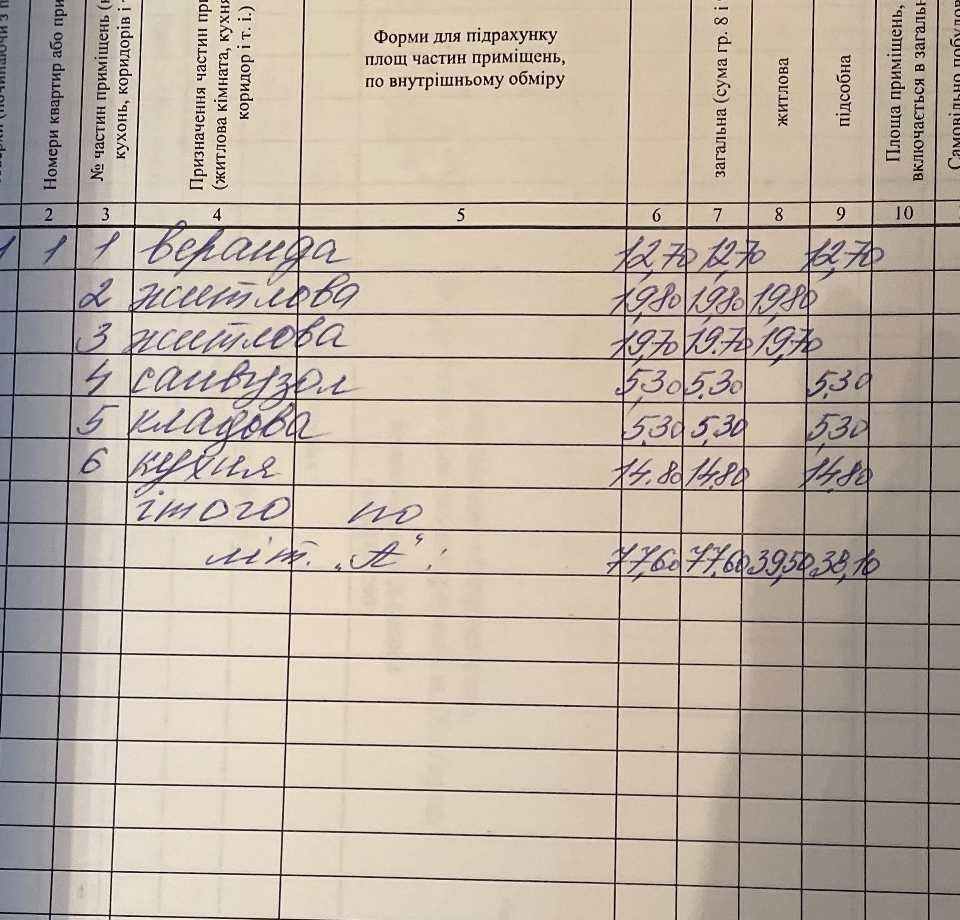 Номери квартир або при
№ частин приміщень (
кухонь, коридорів і
Призначення частин при
(житлова кімната, кухня
коридор і т. і.)
Форми для підрахунку
площ частин приміщень,
по внутрішньому обміру
загальна (сума гр. 8 і
житлова
підсобна
Площа приміщень,
включається в загальн
Самовільно побудов
2 3 4 5 6 7 8 9 10
1 1 1 веранда 12,70 12,70 12,70
2 житлова 19,80 19,80 19,80
3 житлова 19,70 19.70 19,70
4 санвузол 5,30 5.30 5,30
5 кладова 5,30 5,30 5,30
6 кухня 14.80 14.80 14,80
ітого по
літ. „А“: 77,60 77,60 39,50 38,10